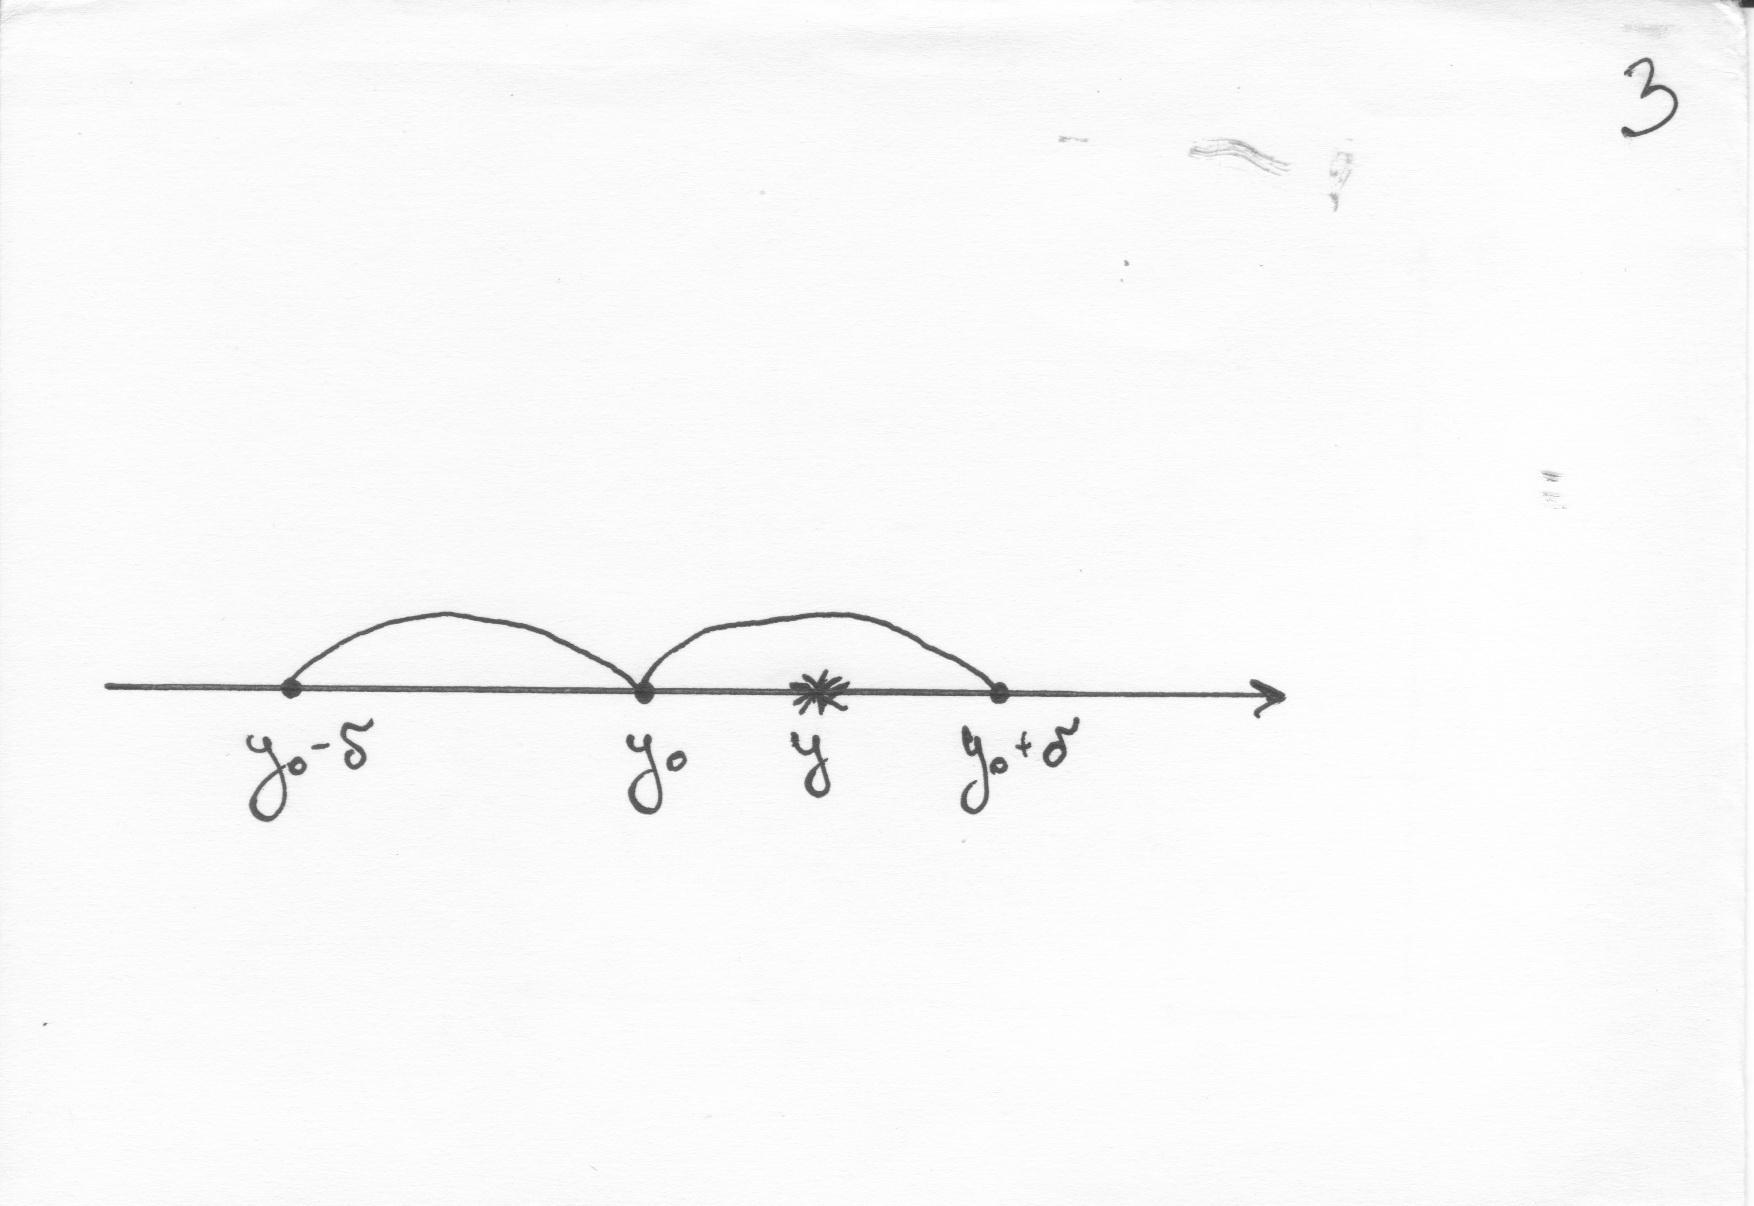 3
y₀-δ y₀ y y₀+δ